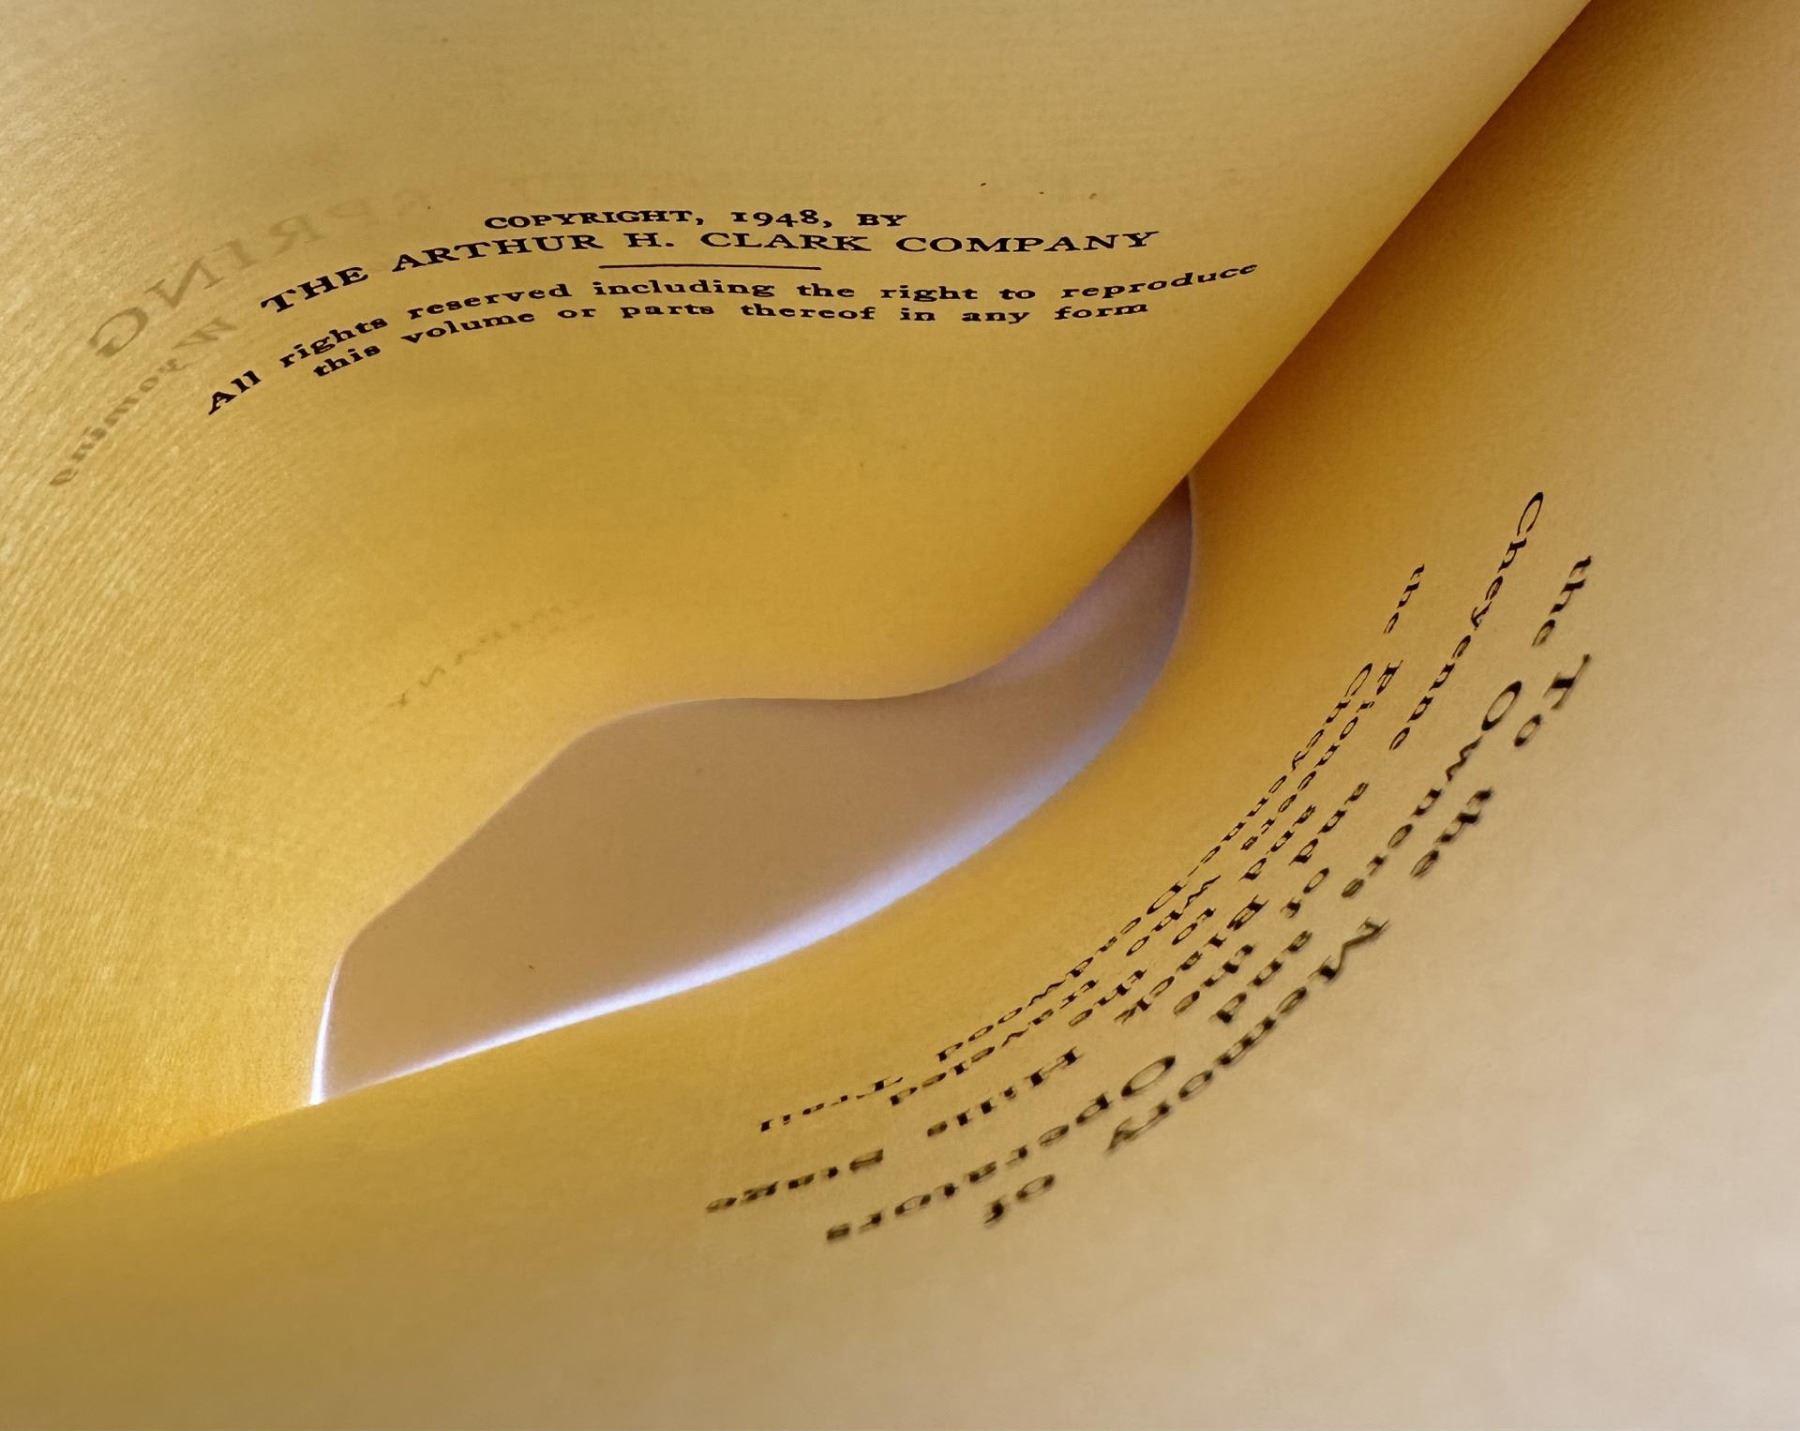 COPYRIGHT, 1948, BY
THE ARTHUR H. CLARK COMPANY
All rights reserved including the right to reproduce
this volume or parts thereof in any form
SPRING
Wyoming
To the Memory of
the Owners and Operators
of the
Cheyenne and Black Hills Stage
and to the
the Pioneers who traveled
Cheyenne-Deadwood Trail